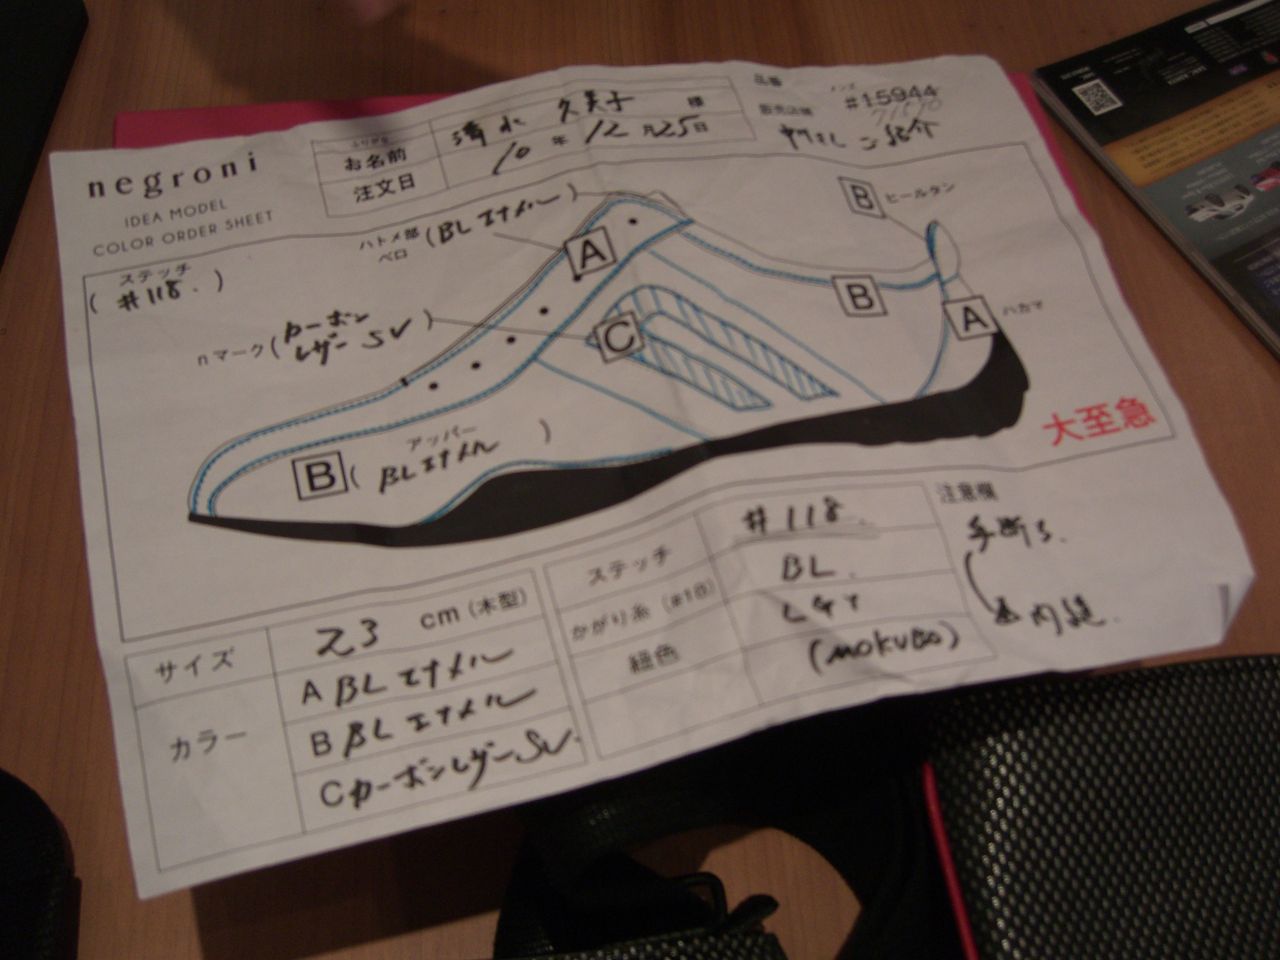 negroni
IDEA MODEL
COLOR ORDER SHEET
ふりがな
お名前 清水 久美子 様
注文日 10 年 12 月 25 日
品番 メンズ #15944
販売店様 ご紹介
ステッチ
( #118. )
ハトメ部 (BLエナメル)
ベロ
A
B ヒールタン
B
A ハカマ
nマーク(カーボン
レザー SV )
C
アッパー
B ( BLエナメル )
大至急
サイズ 23 cm (木型)
カラー A BL エナメル
B BL エナメル
C カーボンレザー SV.
ステッチ #118.
かがり糸 (#10) BL.
縁色 LGY
(MOKUBO)
注意欄
手断ち.
内縫.